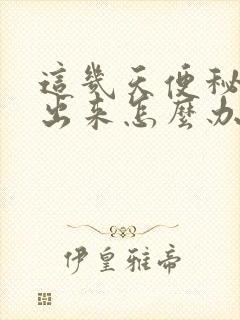 這幾天便秘
出来怎麼办
伊皇雅帝